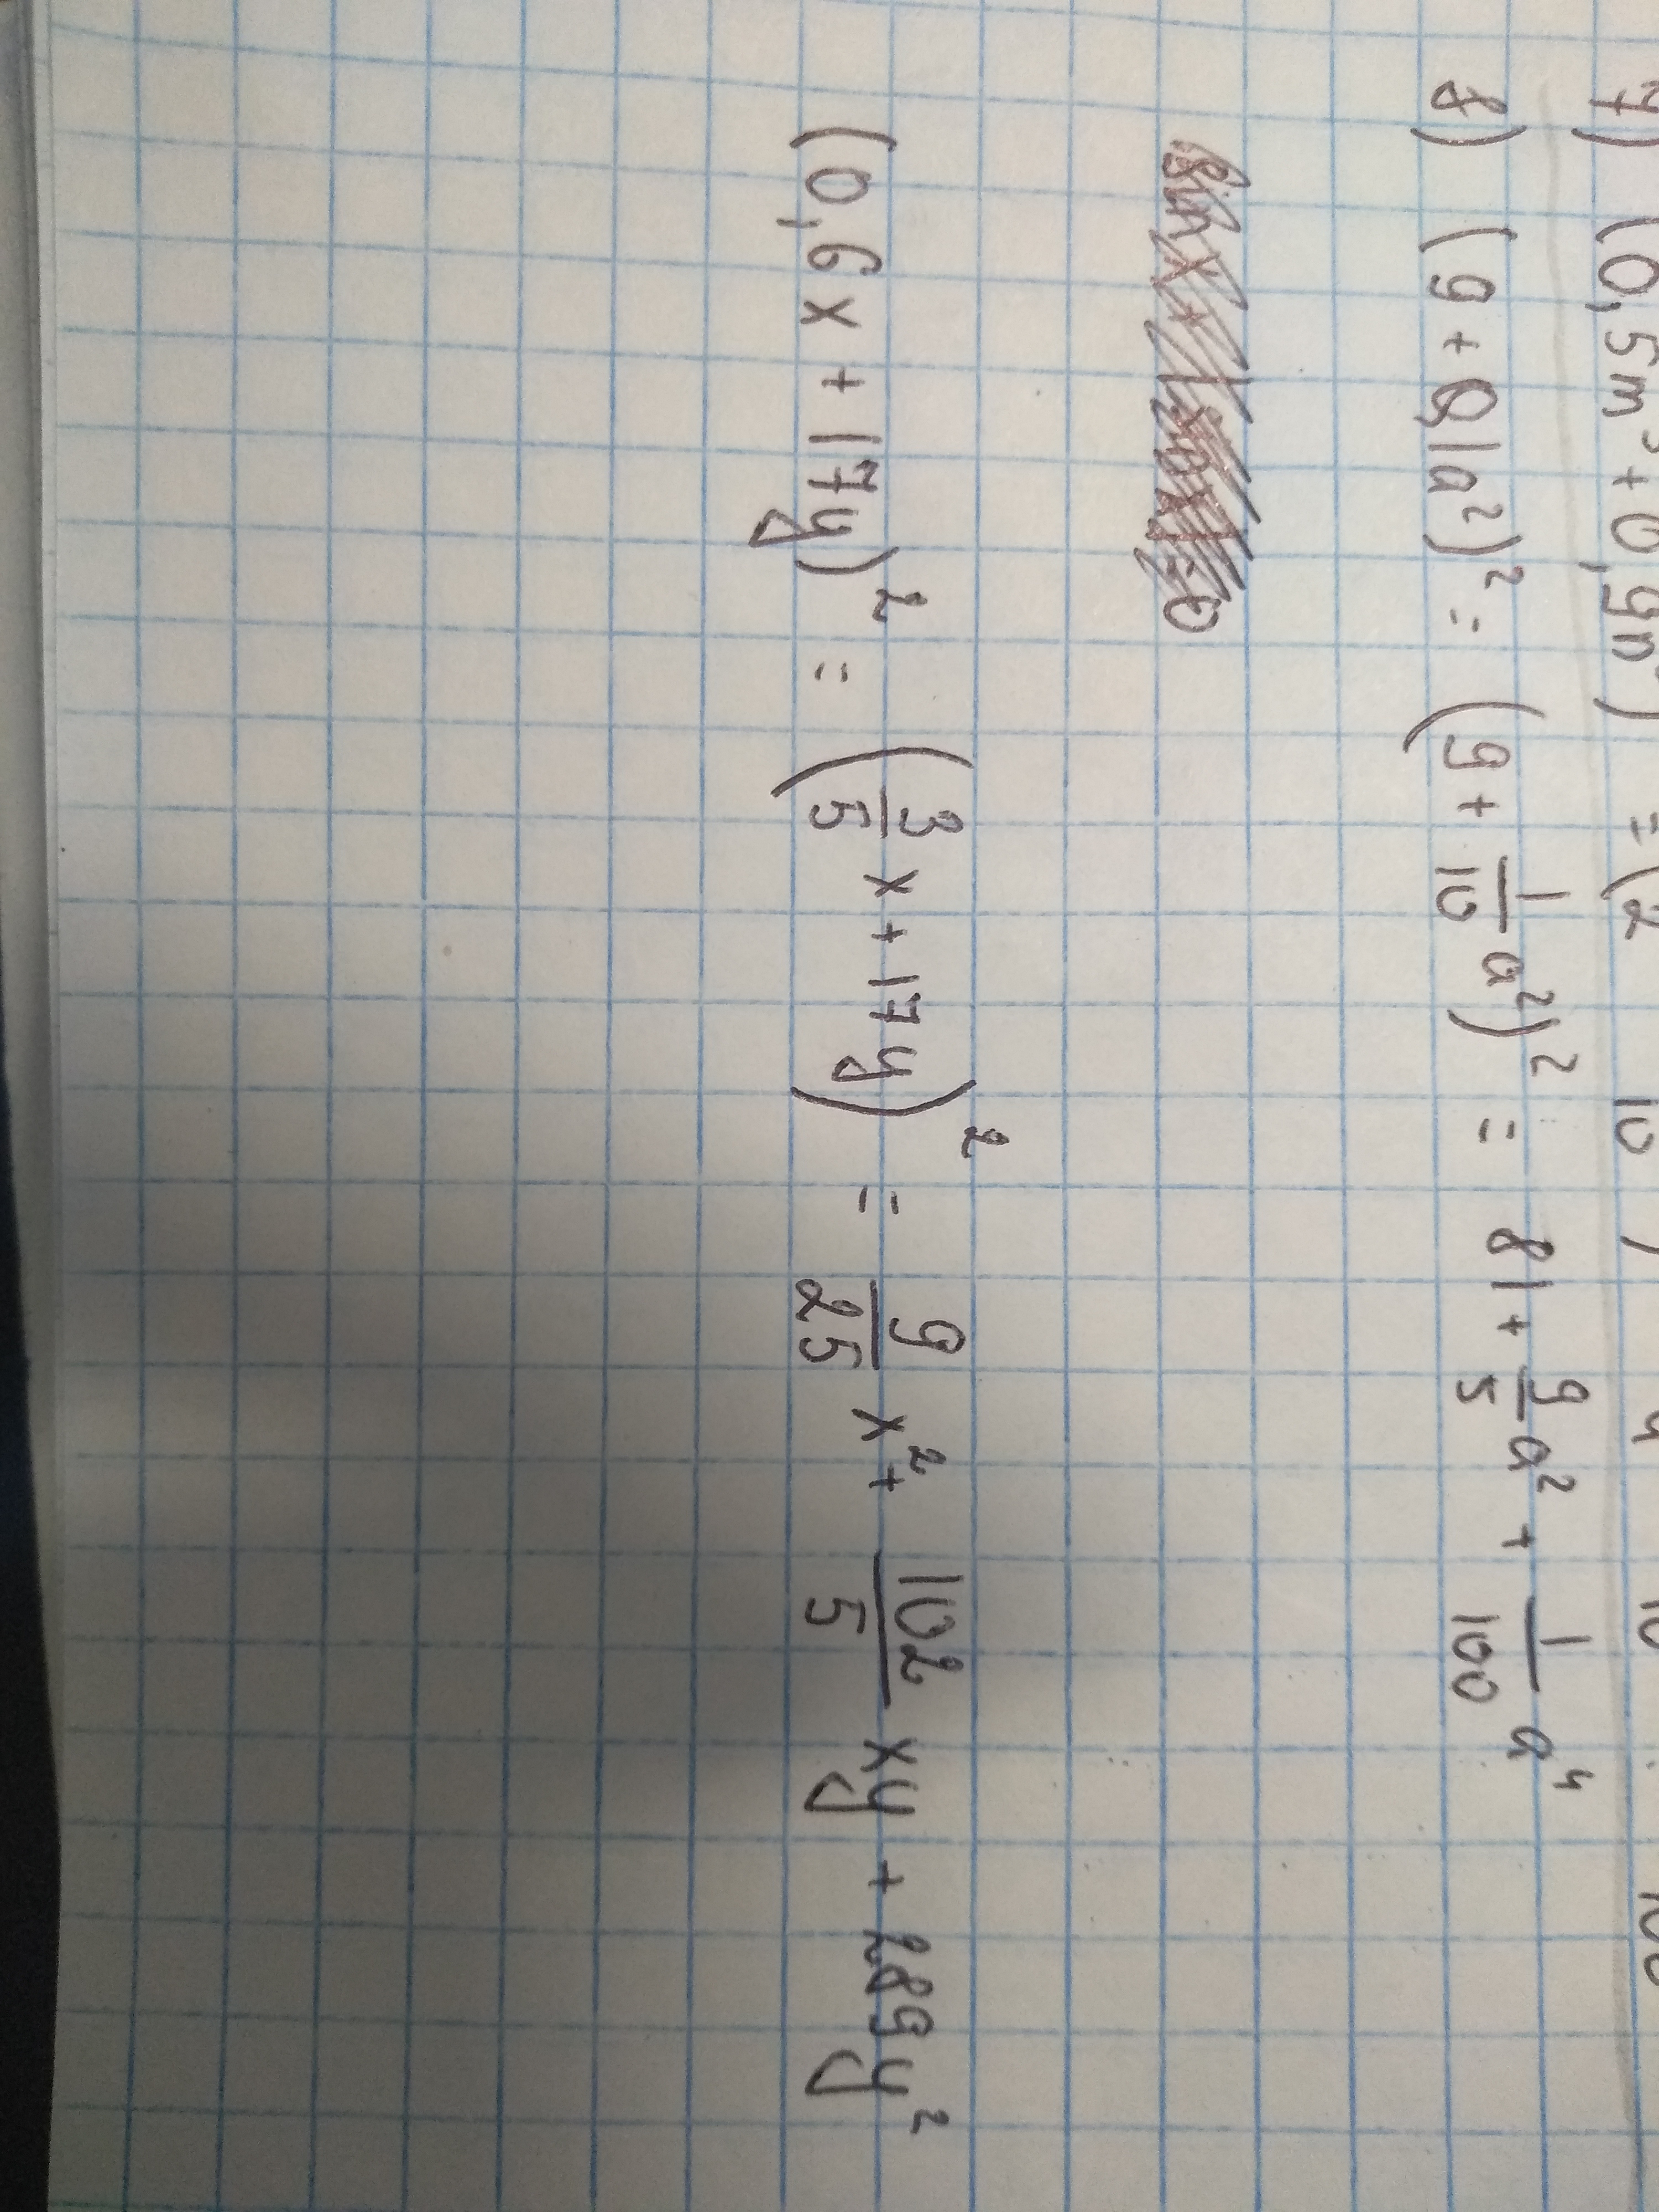 7) (0,5m³ + 0,9n
8) (9 + 0,1a²)² = (9 + 1/10 a²)² = 81 + 9/5 a² + 1/100 a⁴
(0,6x + 17y)² = (3/5 x + 17y)² = 9/25 x² + 102/5 xy + 289y²